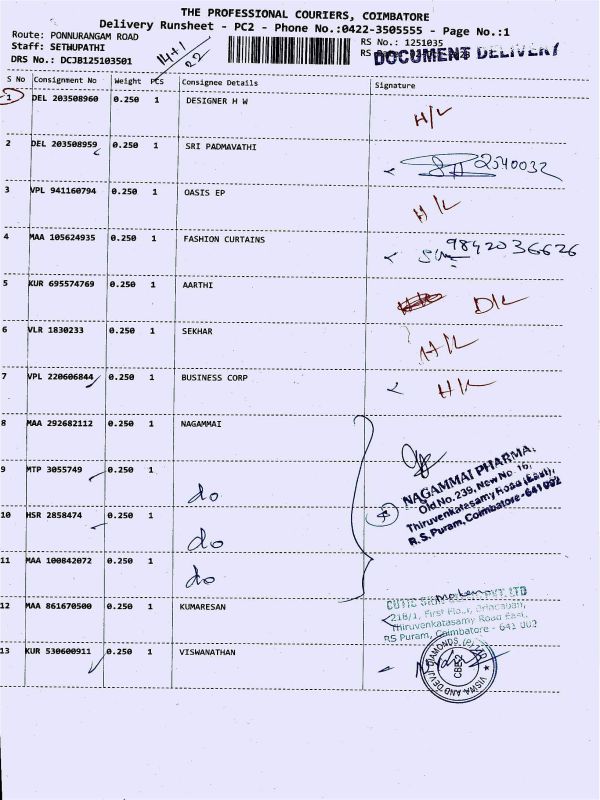 THE PROFESSIONAL COURIERS, COIMBATORE
Delivery Runsheet - PC2 - Phone No.:0422-3505555 - Page No.:1
Route: PONNURANGAM ROAD
Staff: SETHUPATHI
DRS No.: DCJB125103501
14+1
22
RS No.: 1251035
RS
DOCUMENT DELIVERY
S No Consignment No Weight PCS Consignee Details Signature
1 DEL 203508960 0.250 1 DESIGNER H W H/L
2 DEL 203508959 0.250 1 SRI PADMAVATHI 2540032
3 VPL 941160794 0.250 1 OASIS EP H/L
4 MAA 105624935 0.250 1 FASHION CURTAINS 9842036626
5 KUR 695574769 0.250 1 AARTHI D/L
6 VLR 1830233 0.250 1 SEKHAR H/L
7 VPL 220606844 0.250 1 BUSINESS CORP H/L
8 MAA 292682112 0.250 1 NAGAMMAI
9 MTP 3055749 0.250 1 do
10 HSR 2858474 0.250 1 do
11 MAA 100842072 0.250 1 do
NAGAMMAI PHARMA,
Old No.239, New No. 16,
Thiruvenkatasamy Road (East),
R.S. Puram, Coimbatore - 641 002
12 MAA 861670500 0.250 1 KUMARESAN
PVT LTD
218/1, First Floor, Brindaban,
Thiruvenkatasamy Road East,
RS Puram, Coimbatore - 641 002
13 KUR 530600911 0.250 1 VISWANATHAN
VISWA AND DEVJI DIAMONDS (P) LTD
CBE-2